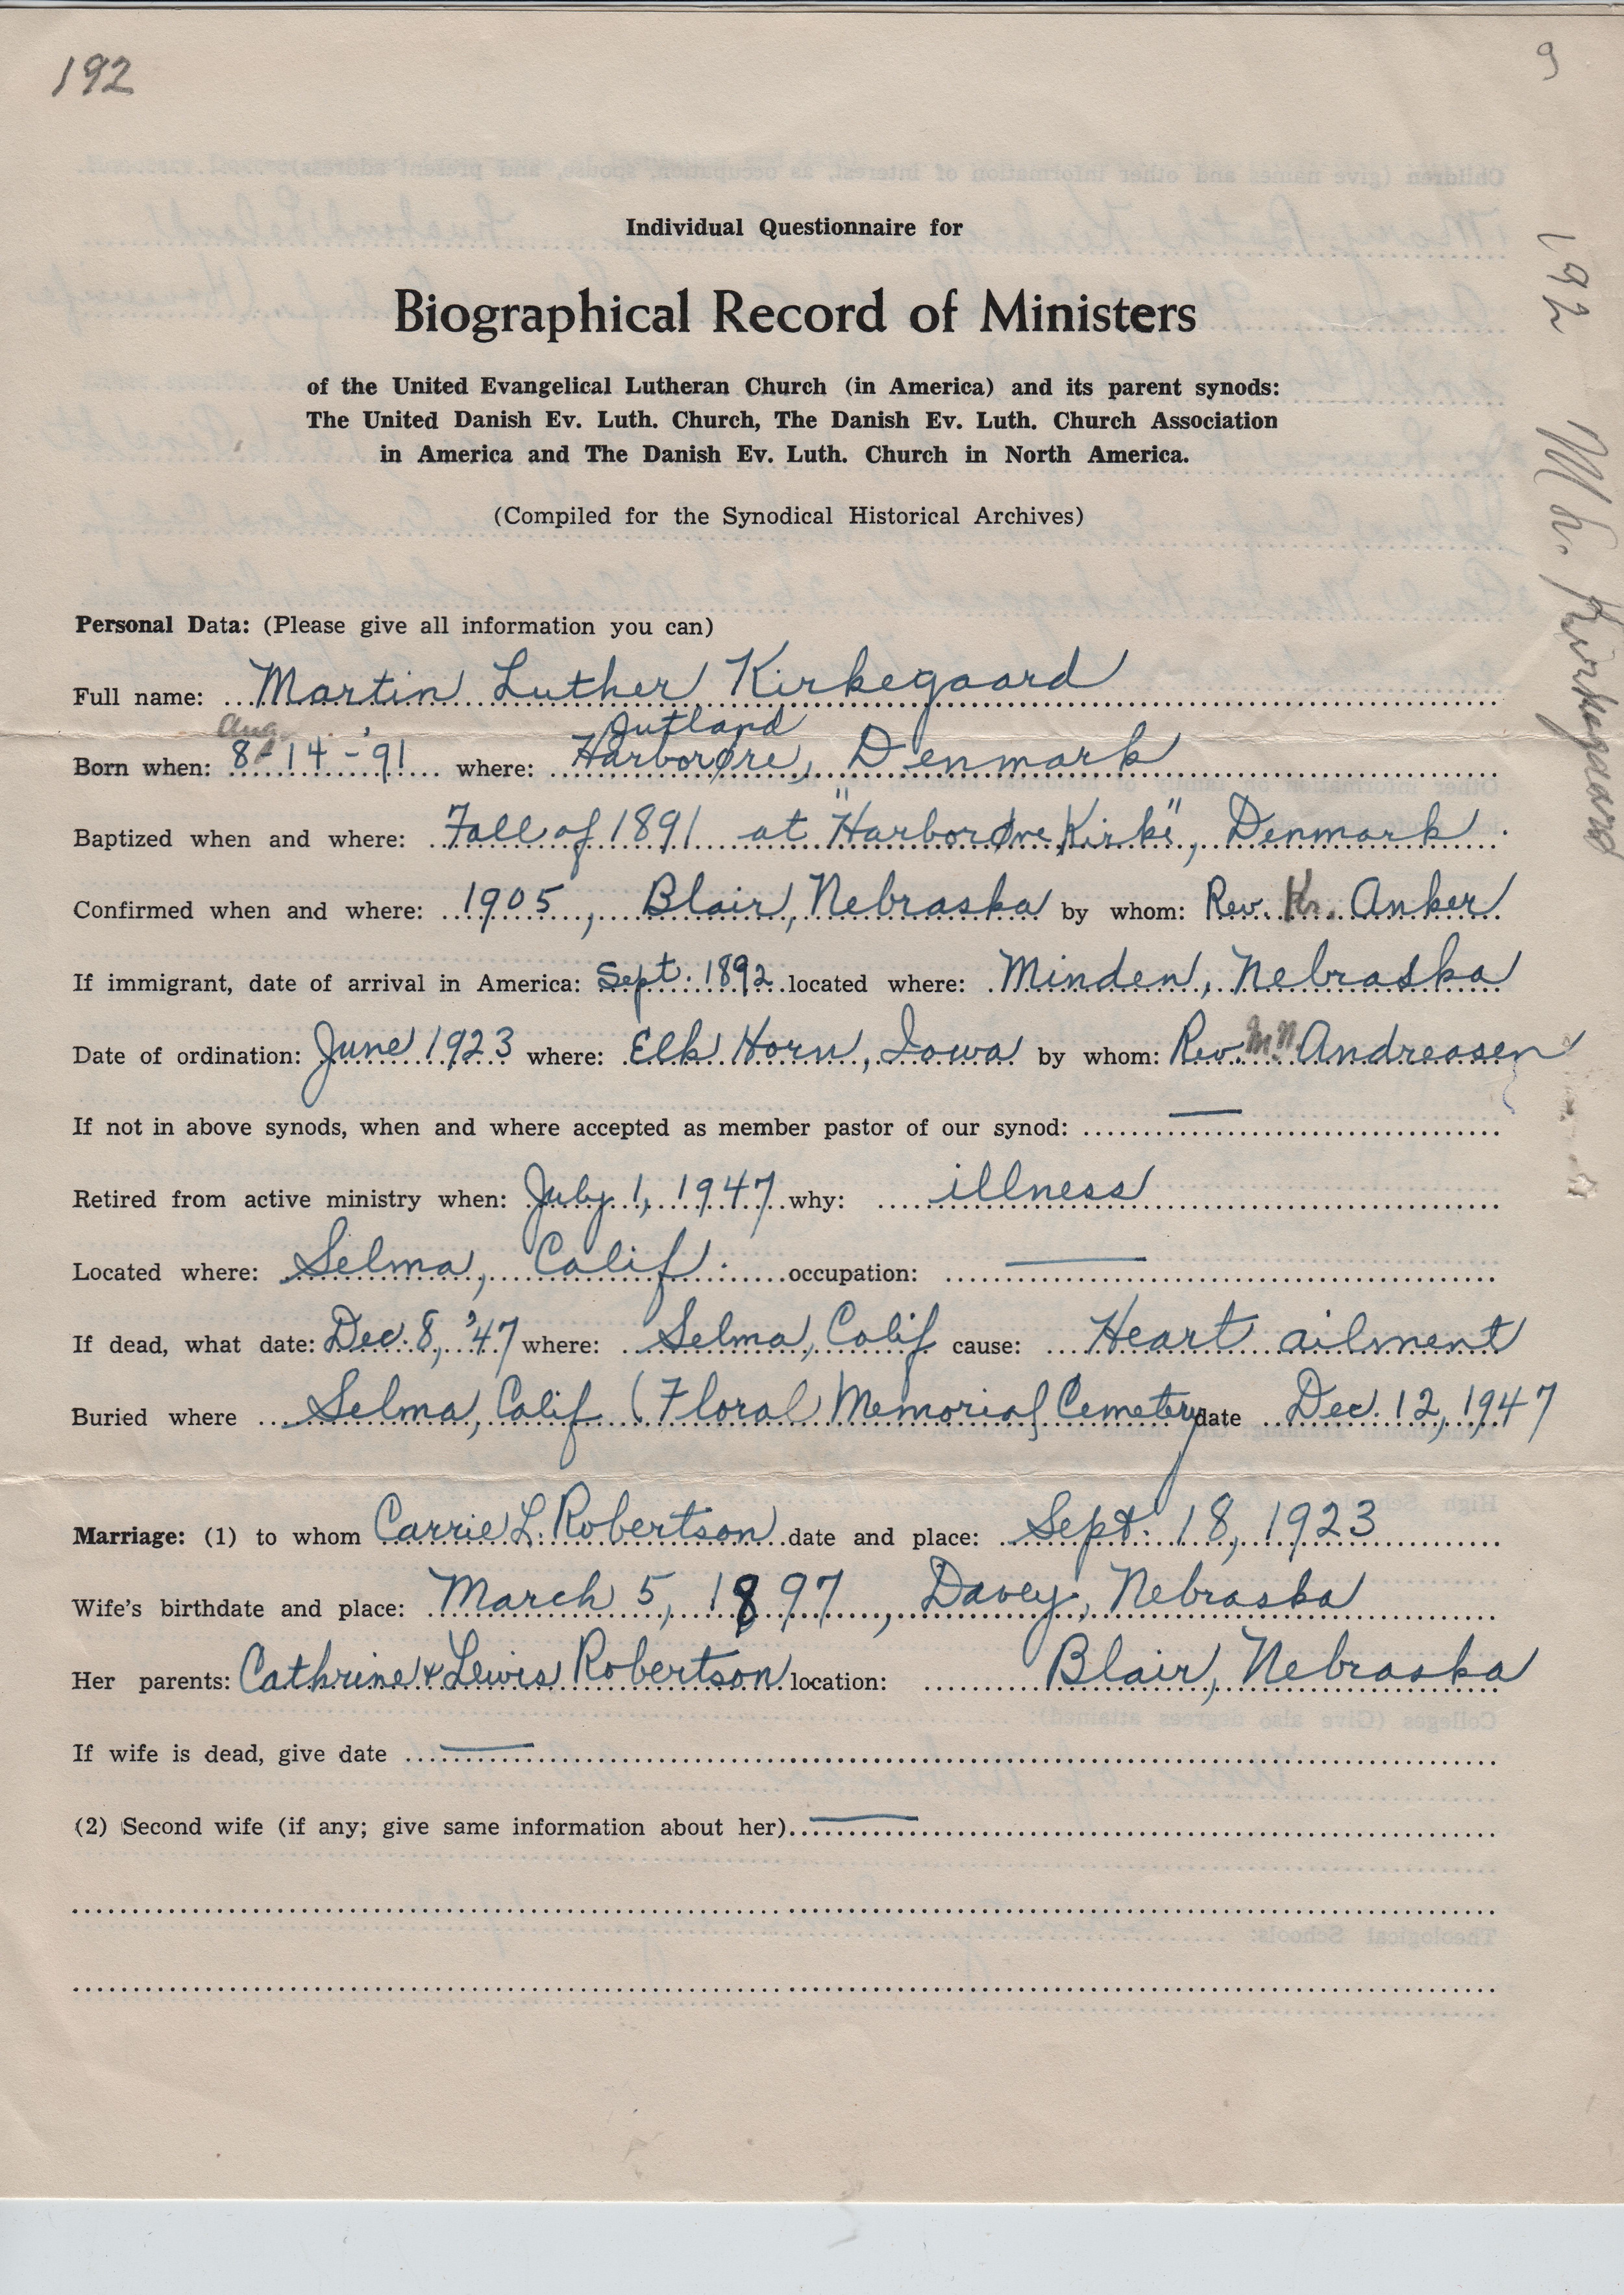 192
9
Individual Questionnaire for
Biographical Record of Ministers
of the United Evangelical Lutheran Church (in America) and its parent synods:
The United Danish Ev. Luth. Church, The Danish Ev. Luth. Church Association
in America and The Danish Ev. Luth. Church in North America.
(Compiled for the Synodical Historical Archives)
192 M L. Kirkegaard
Personal Data: (Please give all information you can)
Full name: Martin Luther Kirkegaard
Aug. Jutland
Born when: 8-14-'91 where: Harborøre, Denmark
Baptized when and where: Fall of 1891 at "Harborøre Kirke", Denmark.
Confirmed when and where: 1905, Blair, Nebraska by whom: Rev. Kr. Anker
If immigrant, date of arrival in America: Sept. 1892 located where: Minden, Nebraska
Date of ordination: June 1923 where: Elk Horn, Iowa by whom: Rev. M N Andreasen
If not in above synods, when and where accepted as member pastor of our synod: —
Retired from active ministry when: July 1, 1947 why: illness
Located where: Selma, Calif. occupation: —
If dead, what date: Dec. 8, '47 where: Selma, Calif cause: Heart ailment
Buried where Selma, Calif (Floral Memorial Cemetery date Dec. 12, 1947
Marriage: (1) to whom Carrie L. Robertson date and place: Sept. 18, 1923
Wife's birthdate and place: March 5, 1897, Davey, Nebraska
Her parents: Cathrine & Lewis Robertson location: Blair, Nebraska
If wife is dead, give date —
(2) Second wife (if any; give same information about her) —